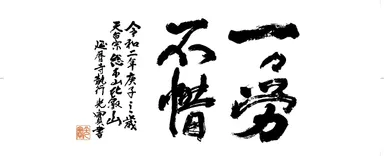 一々労
不惜
令和二年庚子之歳
天台宗総本山比叡山
延暦寺執行光實書